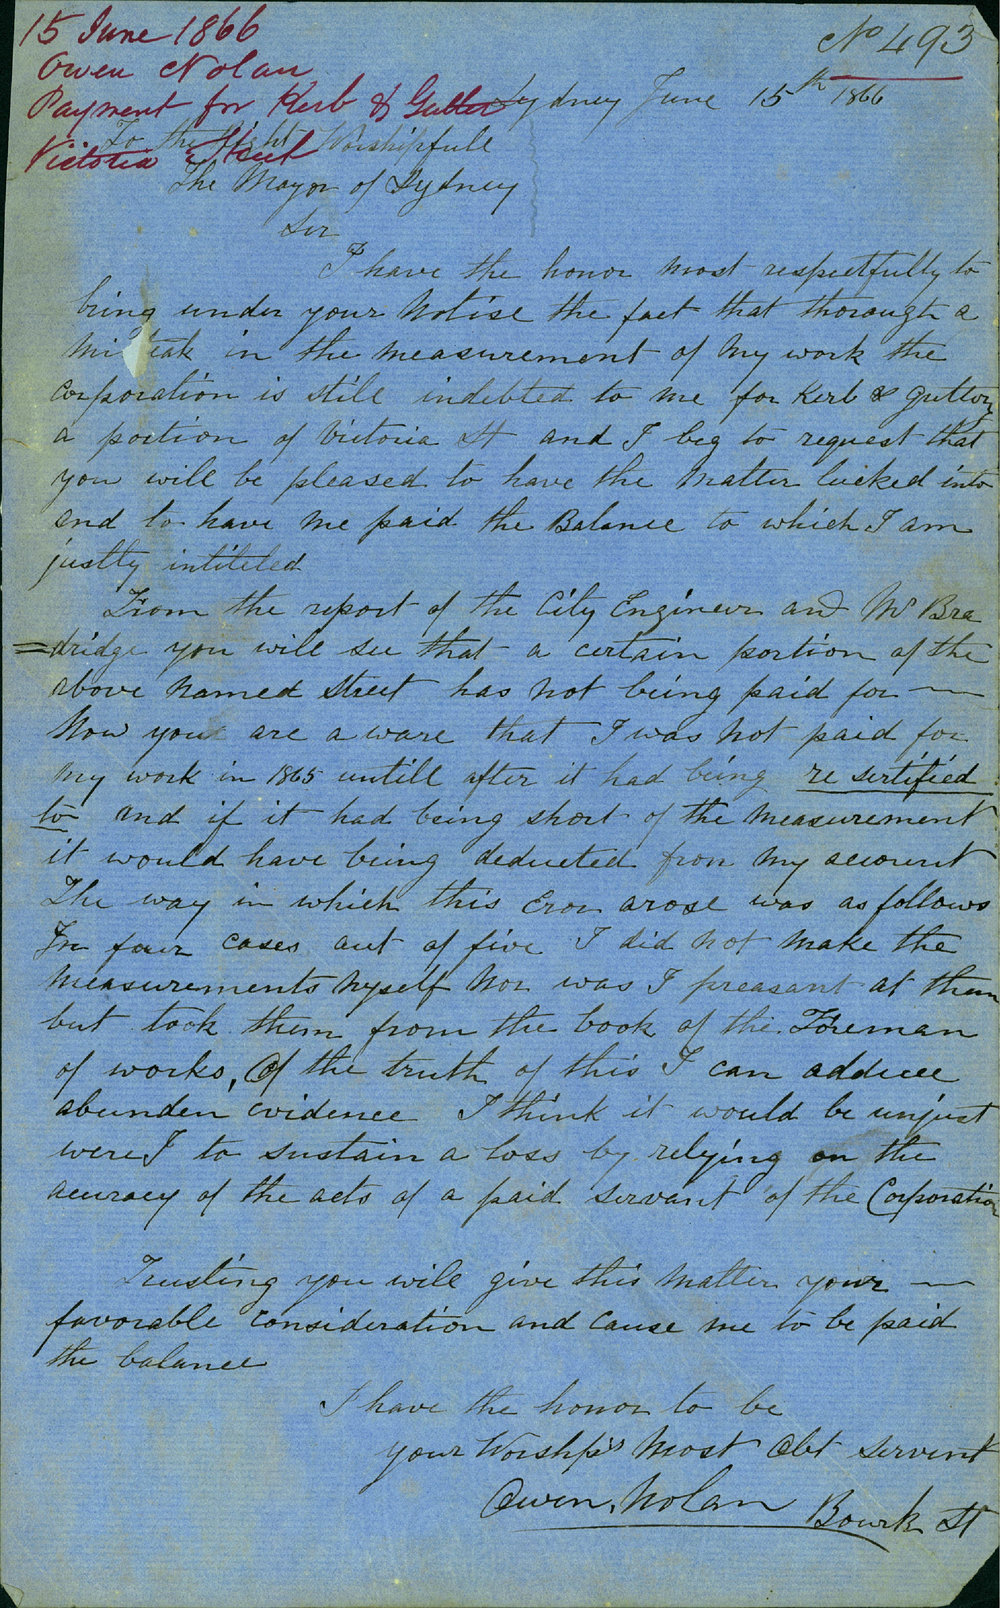 15 June 1866
Owen Nolan
Payment for Kerb & Gutter
Victoria Street
No 493
Sydney June 15th 1866
To the Right Worshipfull
The Mayor of Sydney
Sir
I have the honor most respectfully to
bring under your Notise the fact that thorough a
Mistak in the measurement of my work the
Corporation is still indebted to me for Kerb & guttering
a portion of Victoria St and I beg to request that
you will be pleased to have the Matter lucked into
and to have me paid the Balance to which I am
justly intitled
From the report of the City Engineer and Mr Bra
=dridge you will see that a certain portion of the
above named Street has not being paid for —
Now you are a ware that I was not paid for
my work in 1865 untill after it had being re sertified
to and if it had being short of the measurement
it would have being deducted from my account
The way in which this eror arose was as follows
In four cases out of five I did not make the
measurements myself Nor was I preasant at them
but took them from the book of the Foreman
of works, Of the truth of this I can adduce
abunden evidence I think it would be unjust
were I to sustain a loss by relying on the
acuracy of the acts of a paid servant of the Corporation
Trusting you will give this Matter your —
favorable consideration and cause me to be paid
the balance
I have the honor to be
your Worship's Most Obt servent
Owen Nolan Bourk St